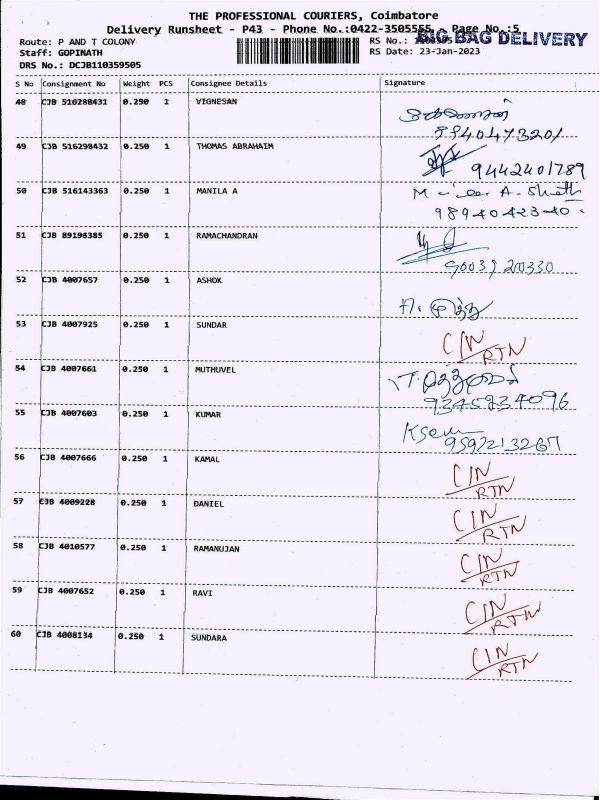 THE PROFESSIONAL COURIERS, Coimbatore
Delivery Runsheet - P43 - Phone No.:0422-3505555 Page No.:5
BIG BAG DELIVERY
Route: P AND T COLONY
RS No.:
Staff: GOPINATH
RS Date: 23-Jan-2023
DRS No.: DCJB110359505
S No Consignment No Weight PCS Consignee Details Signature
48 CJB 516288431 0.250 1 VIGNESAN
8940473201
49 CJB 516298432 0.250 1 THOMAS ABRAHAIM
9442401789
50 CJB 516143363 0.250 1 MANILA A
9894042340
51 CJB 89196385 0.250 1 RAMACHANDRAN
52 CJB 4007657 0.250 1 ASHOK
53 CJB 4007925 0.250 1 SUNDAR C/N
RTN
54 CJB 4007661 0.250 1 MUTHUVEL
9345934096
55 CJB 4007603 0.250 1 KUMAR
9597213267
56 CJB 4007666 0.250 1 KAMAL C/N
RTN
57 CJB 4009228 0.250 1 DANIEL C/N
RTN
58 CJB 4010577 0.250 1 RAMANUJAN C/N
RTN
59 CJB 4007652 0.250 1 RAVI C/N
RTN
60 CJB 4008134 0.250 1 SUNDARA C/N
RTN